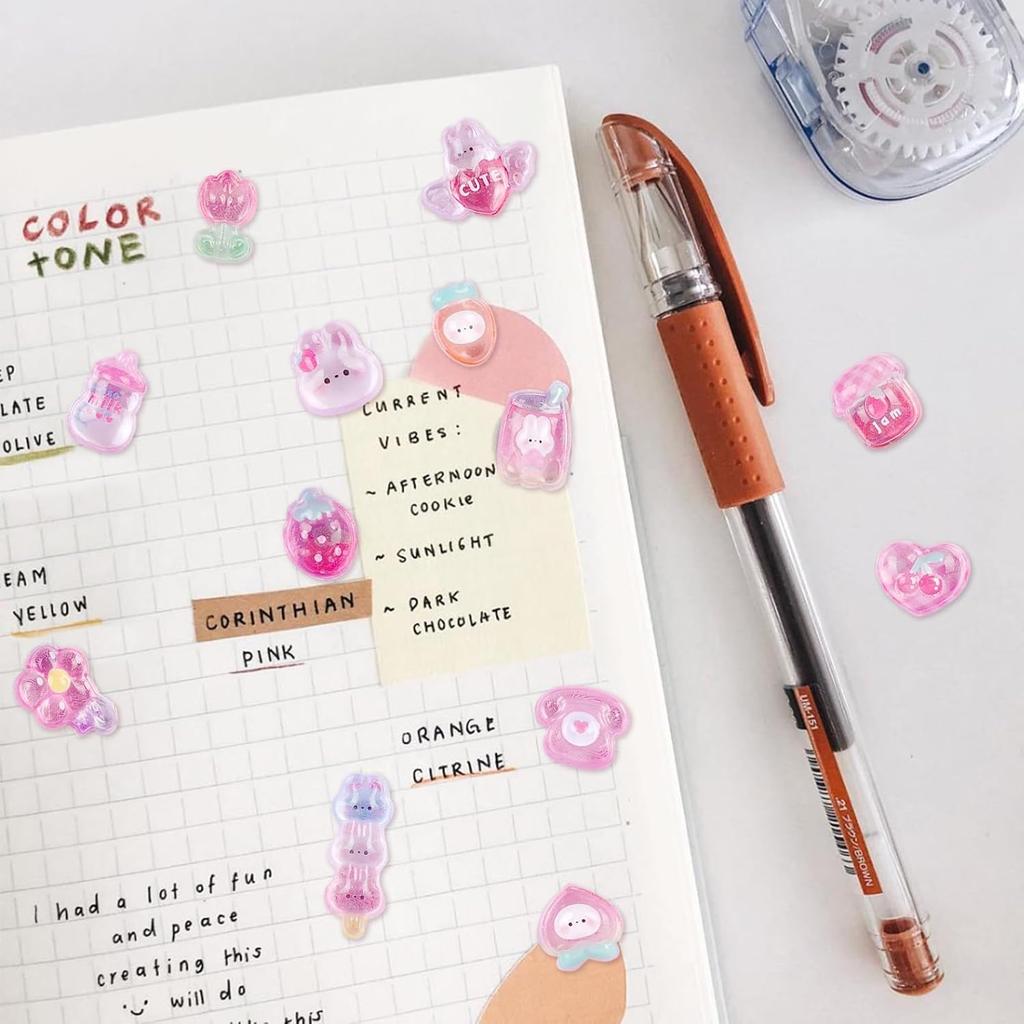 COLOR
tONE
CUTE
EP
LATE
OLIVE
milk
CURRENT
VIBES:
~ AFTERNOON
COOKIE
~ SUNLIGHT
~ DARK
CHOCOLATE
EAM
YELLOW
CORINTHIAN
PINK
ORANGE
CITRINE
I had a lot of fun
and peace
creating this
will do
this
Jam
UM-151
.21 ブラウン/BROWN